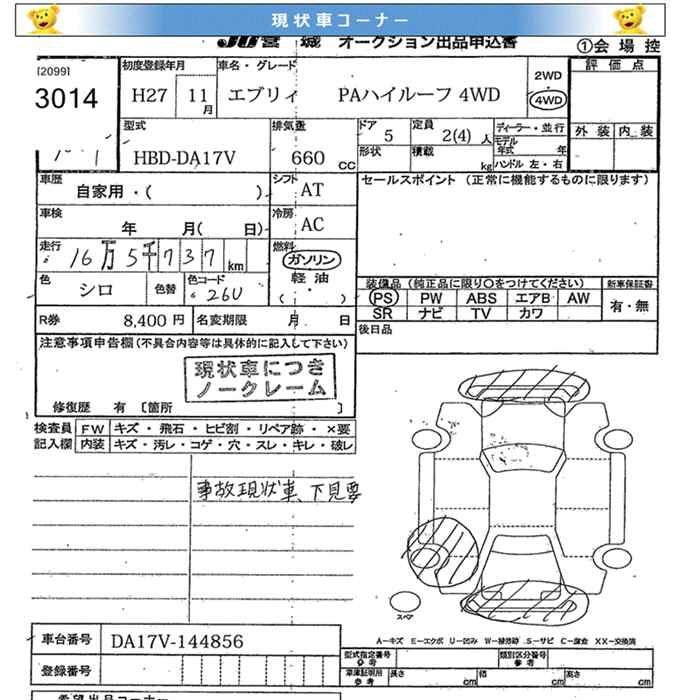 現状車コーナー
JU宮城 オークション出品申込書 ①会場控
[2099]
3014
初度登録年月 車名・グレード
H27 11月 エブリィ PAハイルーフ 4WD
2WD
4WD
評価点
外装 内装
型式 排気量 ドア 定員 ディーラー・並行
HBD-DA17V 660 CC 5 2(4)人
形状 積載 kg
モデル年式 年
ハンドル 左・右
車歴 自家用・( )
シフト AT
セールスポイント (正常に機能するものに限ります)
車検 年 月( 日)
冷房 AC
走行 16万5千737km
燃料 ガソリン
軽油
( ・ )
色 シロ 色替 色コード 26U
装備品(純正品に限り○をつけてください) 新車保証書
PS PW ABS エアB AW 有・無
SR ナビ TV カワ
R券 8,400円 名変期限 月 日
後日品
注意事項申告欄(不具合内容等は具体的に記入して下さい)
現状車につき
ノークレーム
修復歴 有 [箇所 ]
検査員 FW キズ・飛石・ヒビ割・リペア跡・×要
記入欄 内装 キズ・汚レ・コゲ・穴・スレ・キレ・破レ
事故現状車、下見要
スペア
A-キズ E-エクボ U-凹み W-補修跡 S-サビ C-腐食 XX-交換済
車台番号 DA17V-144856
登録番号
型式指定番号 参考 類別区分番号 参考
車庫証明用 参考 長さ cm 幅 cm 高さ cm
希望出品コーナー